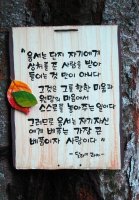 용서는 단지 자기에게
상처를 준 사람을 받아
들이는 것만이 아니다
그것은 그를 향한 미움과
원망의 마음에서
스스로를 놓아주는 일이다
그러므로 용서는 자기자신
에게 베푸는 가장 큰
베풂이자 사랑이다
달라이 라마